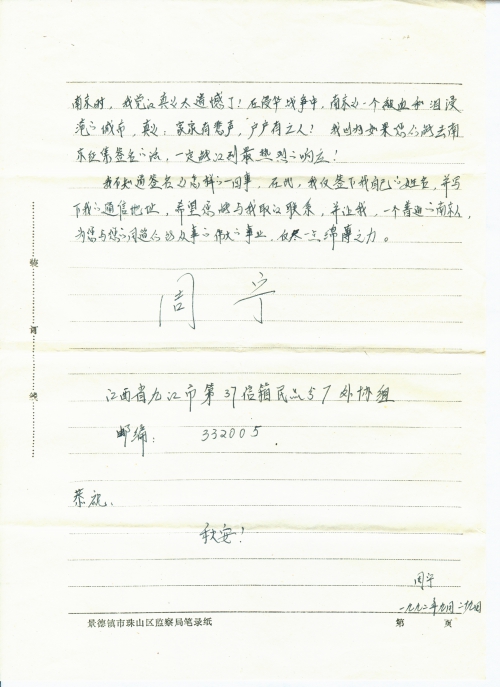 南京时，我觉得真是太遗憾了！在侵华战争中，南京是一个被血和泪浸
泡的城市，真是：家家有悲声，户户有亡人！我想如果您们能去南
京征集签名的话，一定能得到最热烈的响应！
我不知道签名为怎样的一回事，在此，我仅签下我自己的姓名，并写
下我的通信地址，希望您能与我取得联系，并让我，一个普通的南京人，
为您与您的同道们所从事的伟大的事业，仅尽一点绵薄之力。
周宁
江西省九江市第37信箱民品57处协组
邮编：332005.
恭祝、
秋安！
周宁
一九九二年九月二十九日
装订线
景德镇市珠山区监察局笔录纸 第 页